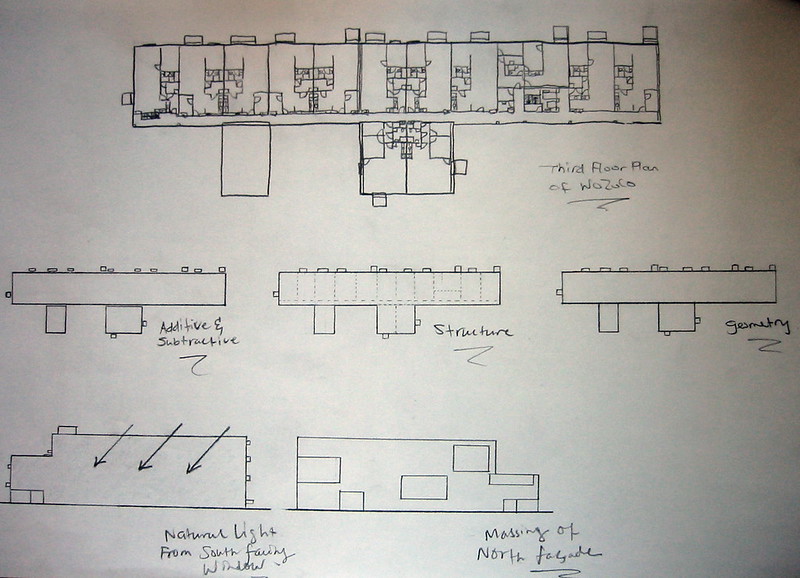 Third Floor Plan
of WoZoCo
Additive &
Subtractive
Structure
geometry
Natural Light
From South facing
Window.
Massing of
North façade